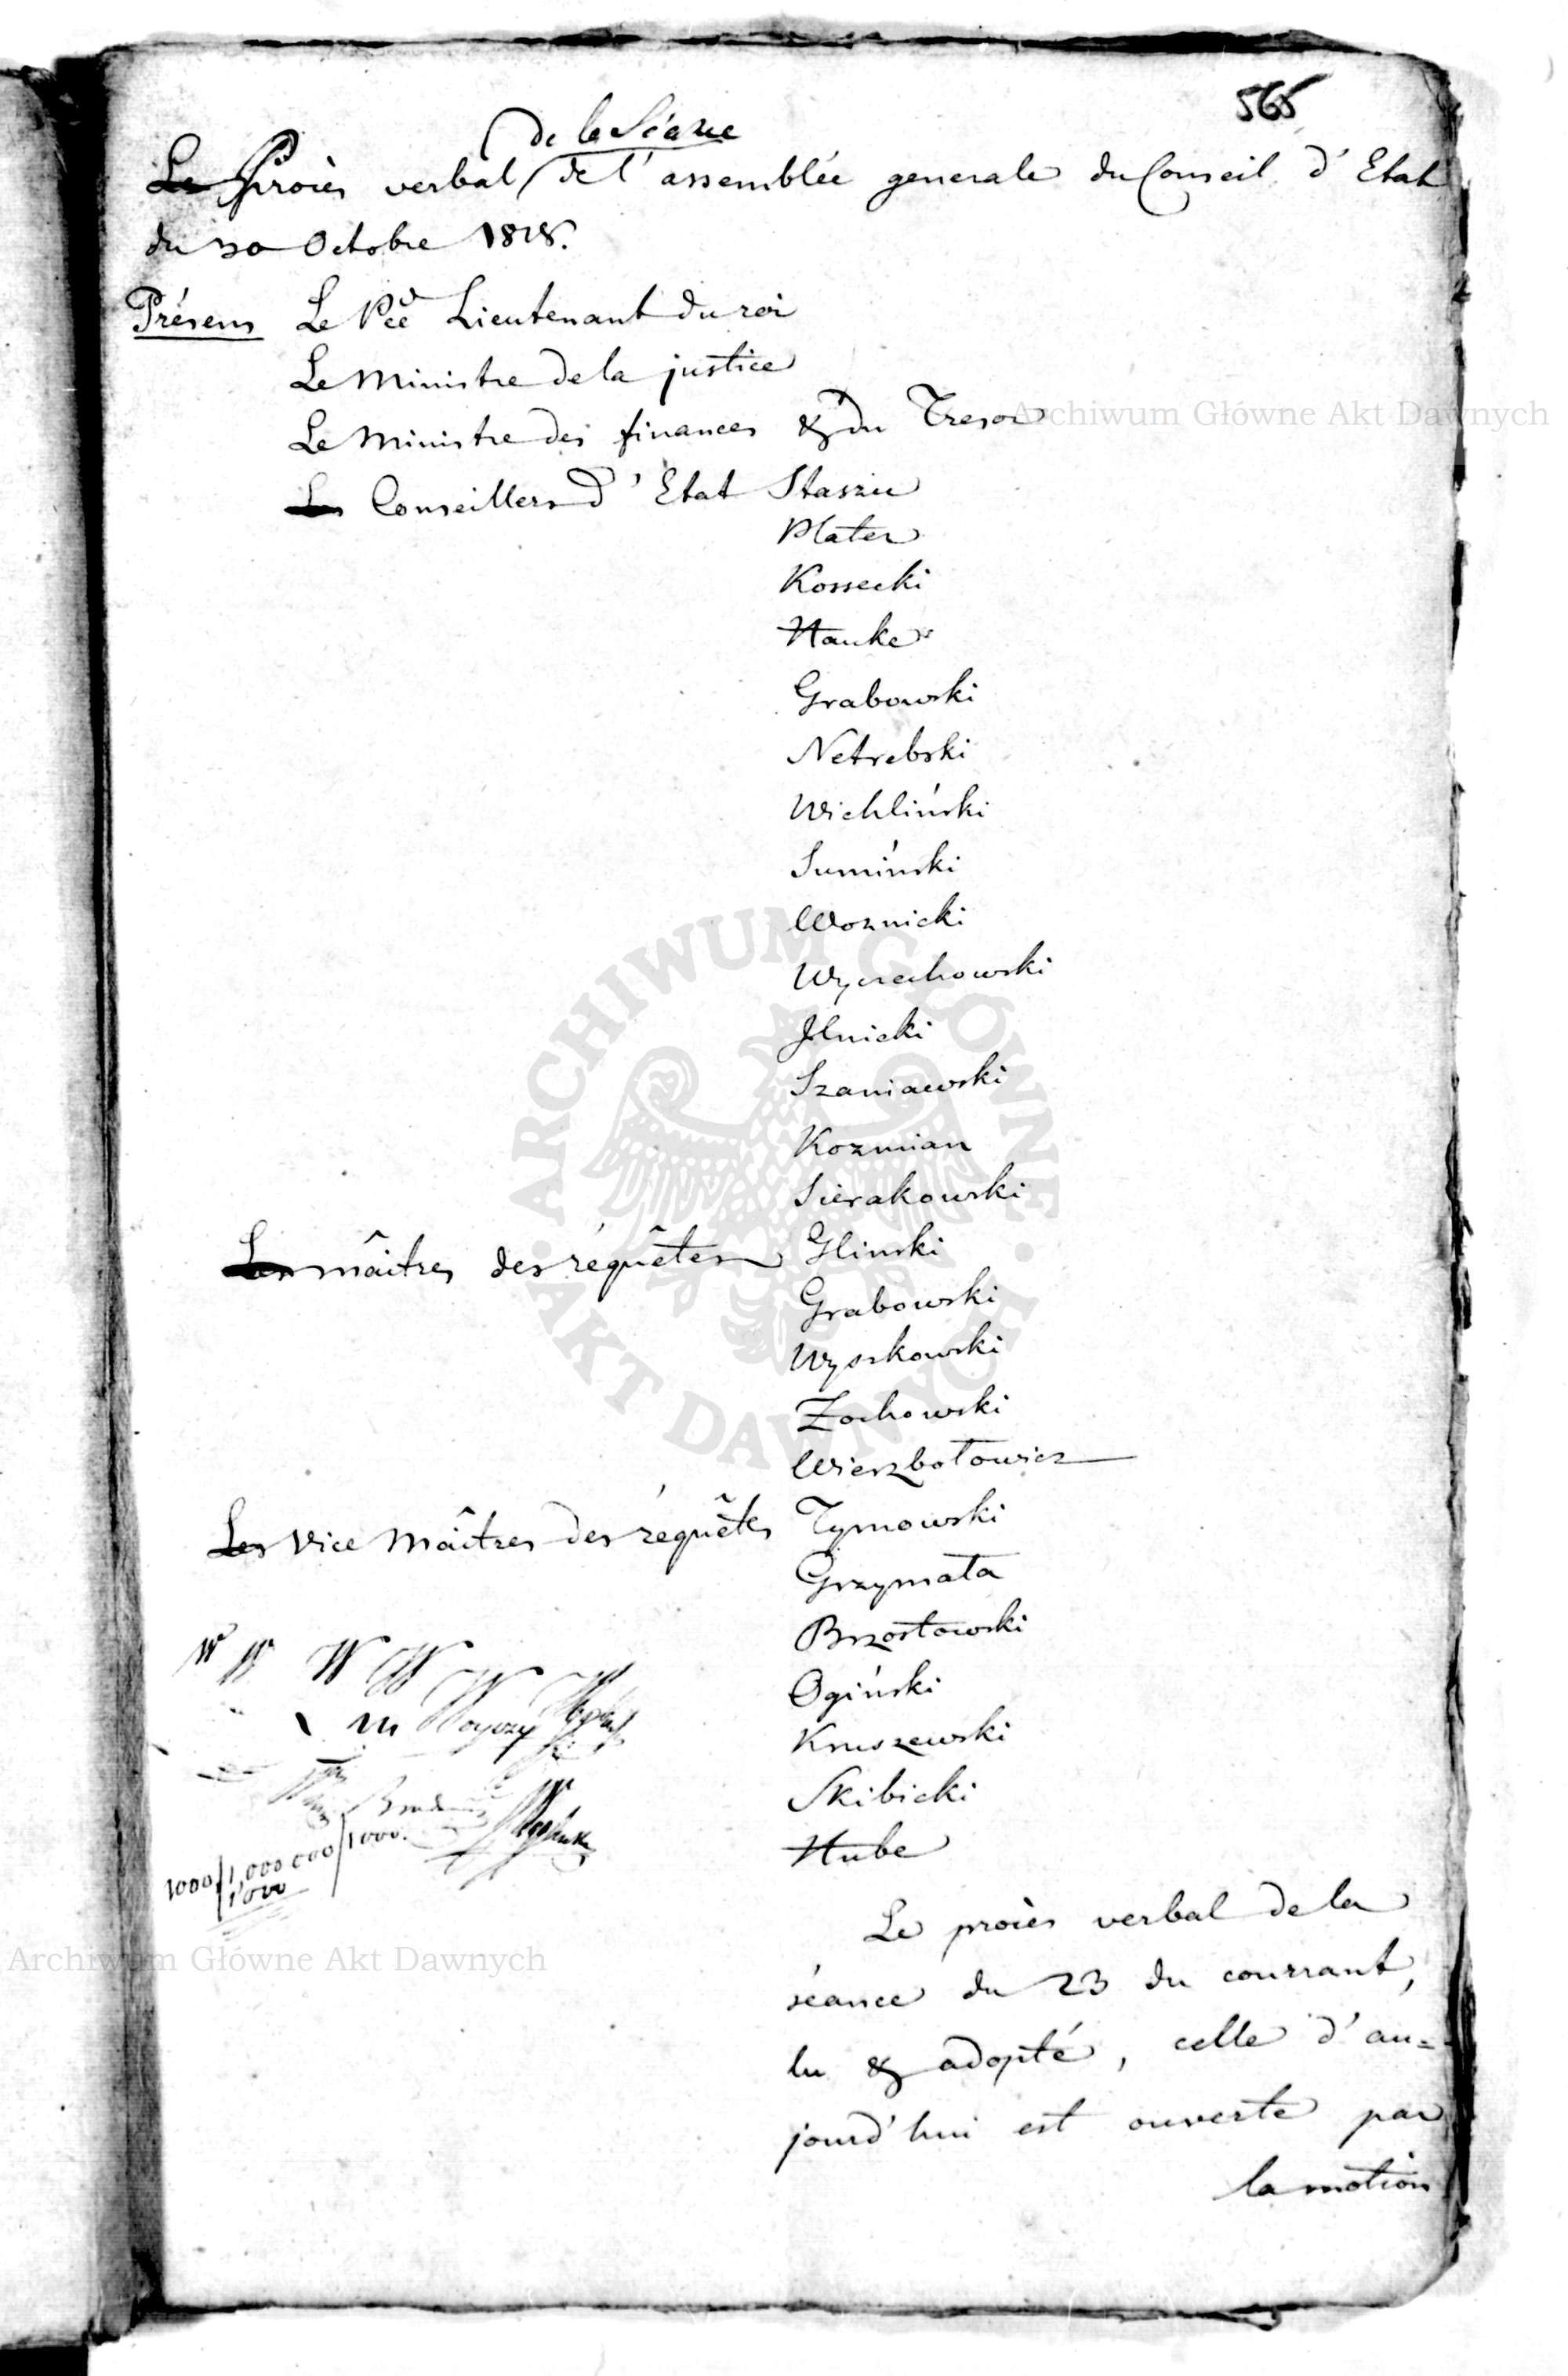 565
de la Séance
Le Procès verbal de l'assemblée generale du Conseil d'Etat
du 30 Octobre 1818.
Présens Le Pce Lieutenant du roi
Le Ministre de la justice
Le Ministre des finances & du Tresor
Les Conseillers d'Etat Staszic
Plater
Kossecki
Hauke
Grabowski
Netrebski
Wichliński
Sumiński
Woznicki
Wyczechowski
Jlnicki
Szaniawski
Kozmian
Sierakowski
Les mâitres des réquêtes Glinski
Grabowski
Wyszkowski
Zochowski
Wierzbołowicz
Les Vice Mâitres des réquêtes Tymowski
Grzymała
Brzostowski
Ogiński
Kruszewski
Skibicki
Hube
W W W W
1000/1,000 000/1000
1000
Le procès verbal de la
séance du 23 du courrant,
lu & adopté, celle d'au=
jourd'hui est ouverte par
la motion
Archiwum Główne Akt Dawnych
Archiwum Główne Akt Dawnych
ARCHIWUM GŁÓWNE AKT DAWNYCH